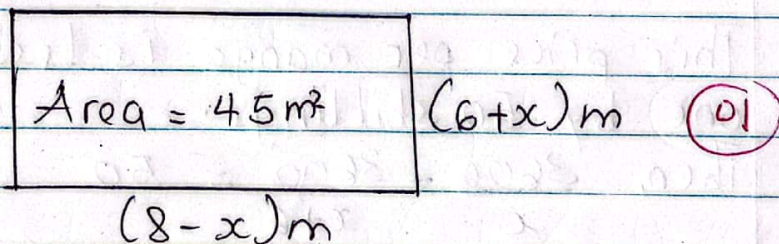 Area = 45m² (6+x)m 01
(8-x)m